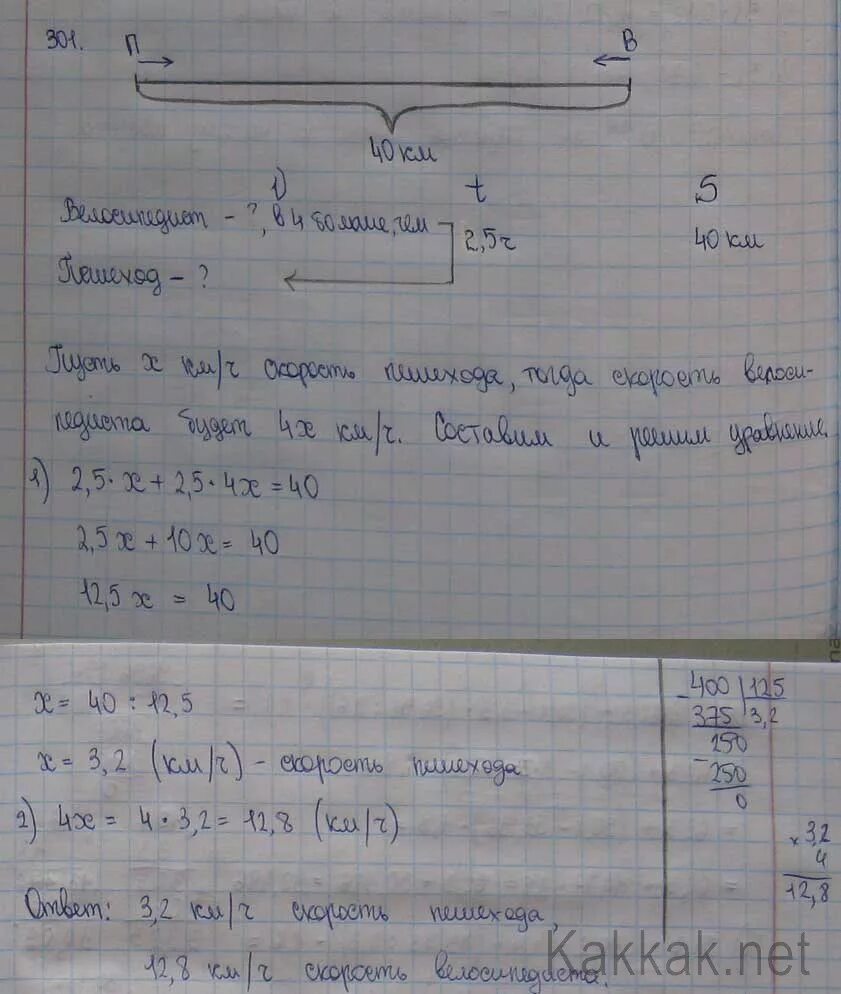 301. П В
40 км
v t S
Велосипедист - ?, в 4 больше, чем 2,5ч 40 км
Пешеход - ?
Пусть x км/ч скорость пешехода, тогда скорость велоси-
педиста будет 4x км/ч. Составим и решим уравнение.
1) 2,5 · x + 2,5 · 4x = 40
2,5x + 10x = 40
12,5x = 40
x = 40 : 12,5
x = 3,2 (км/ч) - скорость пешехода
2) 4x = 4 · 3,2 = 12,8 (км/ч)
Ответ: 3,2 км/ч скорость пешехода,
12,8 км/ч скорость велосипедиста.
400 125
375 3,2
250
250
0
× 3,2
4
12,8
Kakkak.net